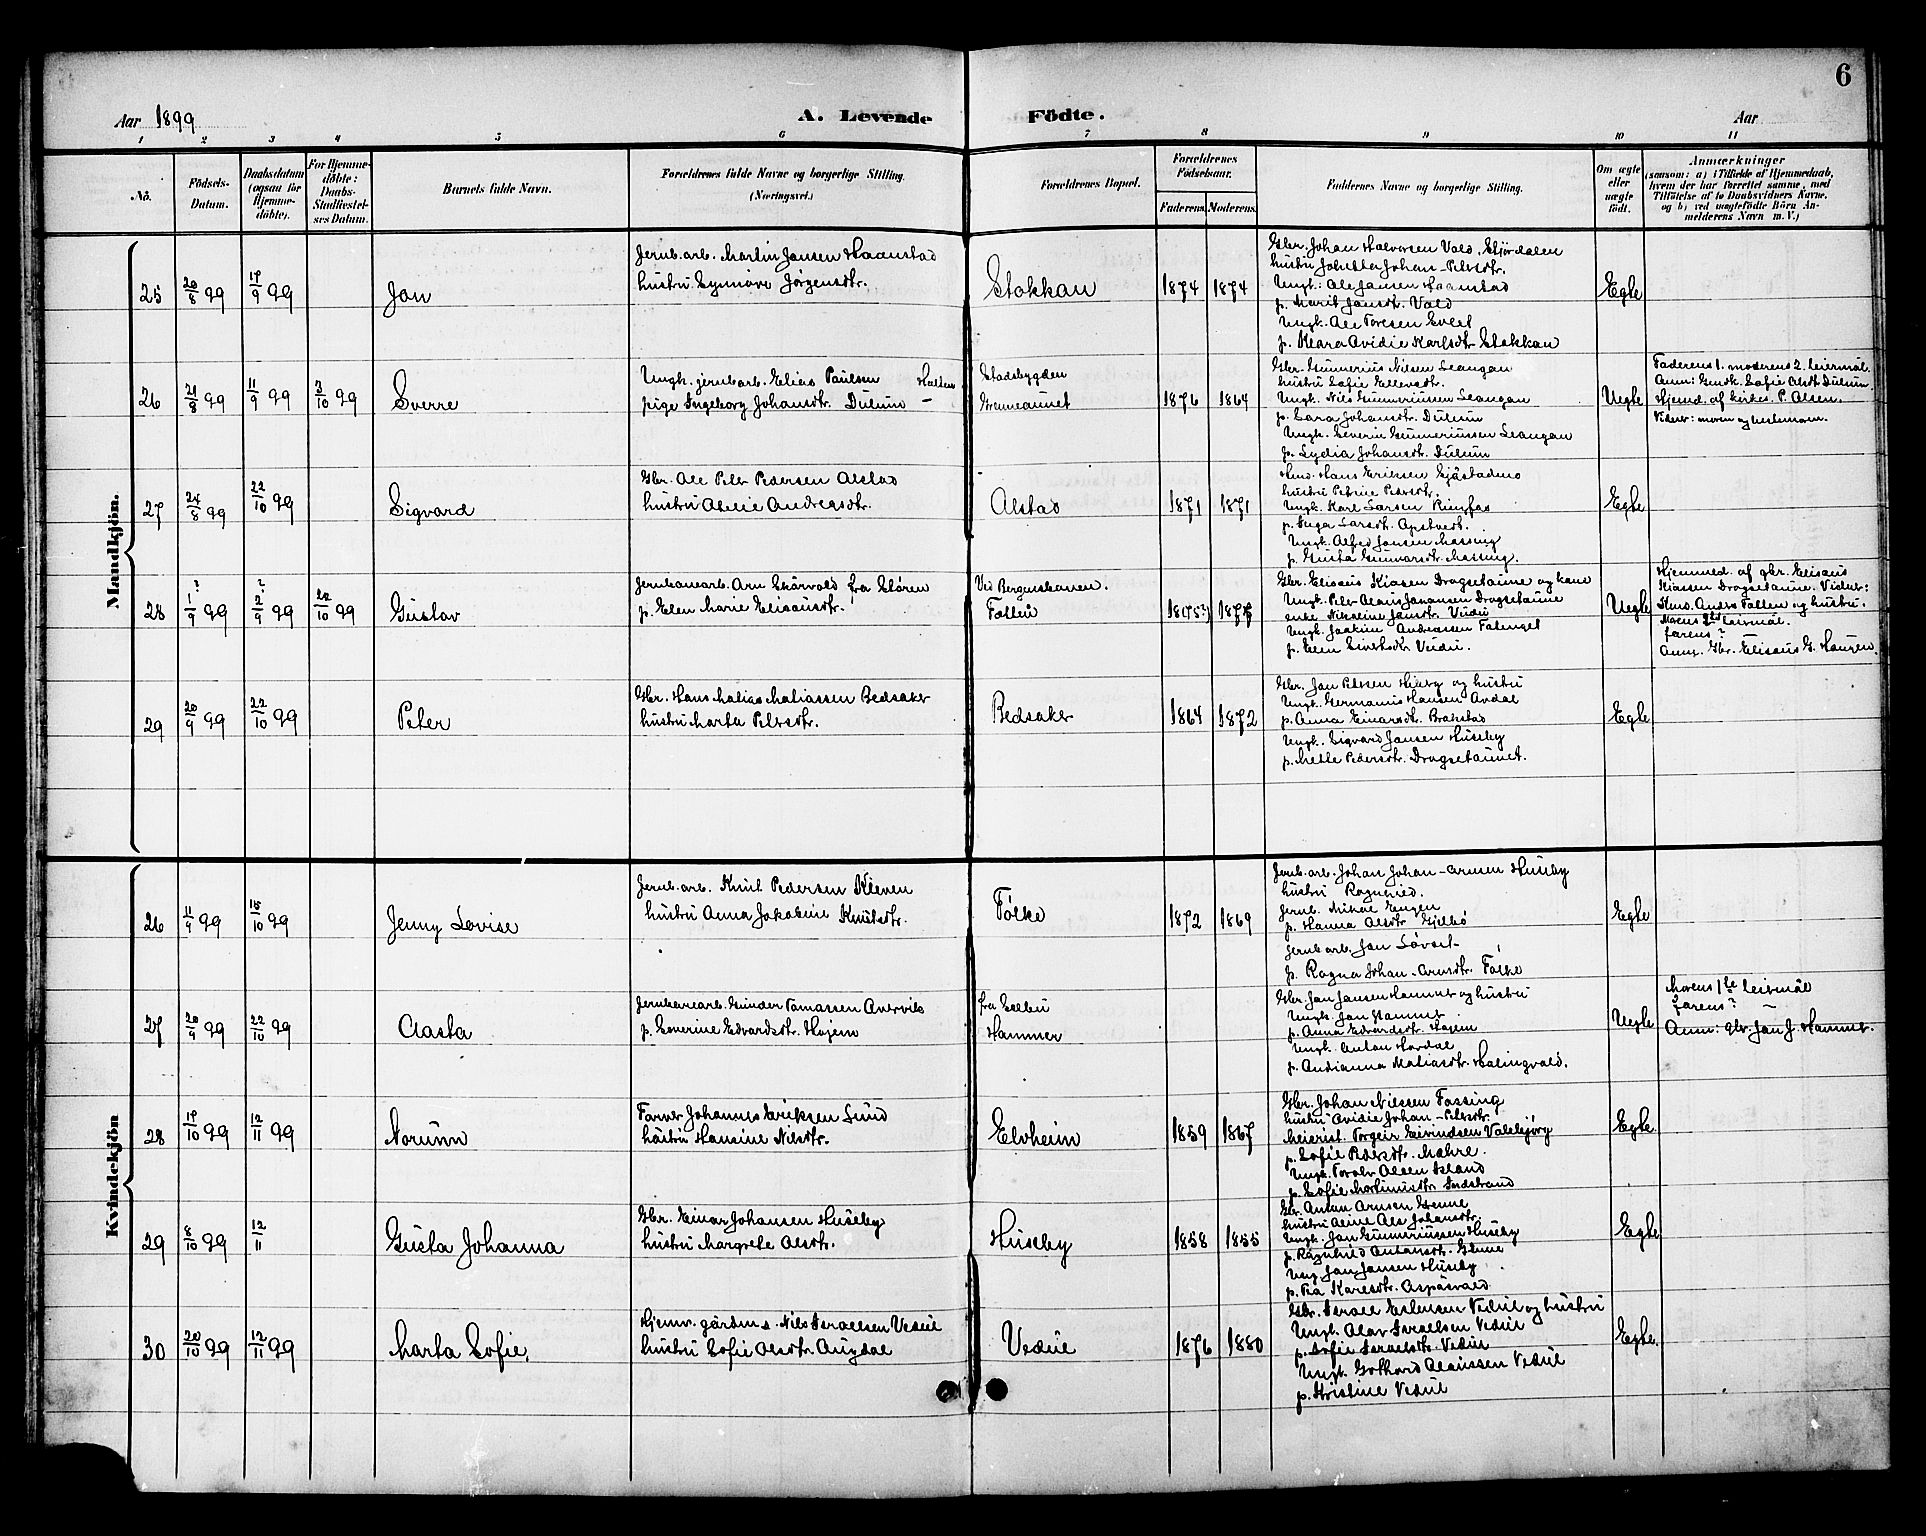 6
Aar 1899
A. Levende Födte.
Aar
1 2 3 4 5 6 7 8 9 10 11
No.
Födsels-Datum.
Daabsdatum (ogsaa for Hjemmedöbte).
For Hjemmedöbte: Daabs-Stadfæstelses Datum.
Barnets fulde Navn.
Forældrenes fulde Navne og borgerlige Stilling. (Næringsvei.)
Forældrenes Bopæl.
Forældrenes Födselsaar.
Faderens. Moderens.
Faddernes Navne og borgerlige Stilling.
Om ægte eller uægte födt.
Anmærkninger
(saasom: a) i Tilfælde af Hjemmedaab, hvem der har forrettet samme, med Tilföielse af to Daabsvidners Navne, og b) ved uægtefödte Börn Anmelderens Navn m. V.)
Mandkjön.
25 20/8 99 17/9 99 Jon
Jernb.arb. Martin Jonsen Haanstad
hustru Synnöve Jørgensdtr.
Stokkan 1874 1874
Gbr. Johan Halvorsen Vold, Stjørdalen
hustru Johetta Johan-Petersdtr.
Ungk: Ole Jonsen Haanstad
p. Marit Jonsdtr. Vold
Ungk. Ole Toresen Evlet
p. Klara Ovidie Karlsdtr. Stokkan
Egte
26 21/8 99 11/9 99 3/10 99 Sverre
Ungk. jernb.arb. Elias Paulsen Halten
pige Ingeborg Johansdtr. Dulum
Stadsbygden
Grenneaunet 1876 1864
Gbr. Gunnerius Nilsen Leangan
hustru Sofie Ellevsdtr.
Ungk. Nils Gunneriussen Leangan
p. Sara Johansdtr. Dulum
Ungk. Severin Gunneriussen Leangan
p. Lydia Johansdtr. Dulum
Uegte
Faderens 1. moderens 2. leiermål.
Anm: Gmdk. Sofie Olsdt. Dulum
Hjemd. af kirkes. P. Olsen.
Vidner: moren og bestemoren.
27 24/8 99 22/10 99 Sigvard
Gbr. Ole Peter Pedersen Alstad
hustru Oleie Andreasdtr.
Alstad 1871 1871
Hmd. Hans Eriksen Gjöstadmo
hustru Petrine Pedersdtr.
Ungk. Karl Larsen Ringfas
p. Inga Larsdtr. Opstvedt.
Ungk. Alfred Jonsen Massing
p. Gusta Gunnarsdtr. Massing.
Egte
28 1/9 ? 99 2/9 ? 99 22/10 99 Gustav
Jernbanearb. Arn Skårvold fra Støren
p. Elen Marie Elisæusdtr.
Ved Bergunshaven.
Follen 18(75?) 1877
Gbr. Elisæus Kiasen Dragsetaune og kone
Ungk. Peter Olaus Johansen Dragsetaune
enke Nikoline Jonsdtr. Vudu
Ungk. Joakim Andreassen Folenget
p. Elen Sivertsdtr. Vudu.
Uegte
Hjemmed. af gbr. Elisæus
Kiassen Dragsetaune. Vidner:
Hmd. Andrs Follen og hustru.
Morens 2det leiermål.
farens ?
Anm. Gbr. Elisæus G. Haugen.
29 20/9 99 22/10 99 Peter
Gbr. Hans Malias Maliassen Bedsaker
hustru Marta Petersdtr.
Bedsaker 1864 1872
Gbr. Jon Petersen Huseby og hustru
Ungk. Germanius Hansen Ondal
p. Anna Einarsdtr. Brakstad
Ungk. Sigvard Jonsen Huseby
p. Mette Pedersdtr. Dragsetaunet.
Egte
Kvindekjön
26 11/9 99 15/10 99 Jenny Lovise
Jernb.arb. Knut Pedersen Kleven
hustru Anna Jakobine Knutsdtr.
Følke 1872 1869
Jernb.arb. Johan Johan-Arnsen Huseby
hustru Ragnhild.
Jernb. Mikal Engen
p. Hanna Olsdtr. Gjelbö
Jernb.arb. Jon Løvset
p. Ragna Johan-Arnsdtr. Følke
Egte
27 20/9 99 22/10 99 Aasta
Jernbanearb. Gunder Tomassen Avervik
p. Severine Edvardsdtr. Hojem
fra Selbu
Hammer
Gbr. Jon Jonsen Hammer og hustru
Ungk. Jon Hammer
p. Anna Edvardsdtr. Hojem
Ungk. Anton Hardal
p. Andianna Maliasdtr. Halingvold.
Uegte
Morens 1ste leiermål
farens ?
Anm: gbr. Jon J. Hammer.
28 17/10 99 12/11 99 Norunn
Farver Johannes Eriksen Lund
hustru Hansine Nilsdtr.
Elvheim 1859 1867
Gbr. Johan Nilssen Fossing
hustru Ovidie Johan-Petersdtr.
Meierist. Torgeir Eivindsen Valebjörg
p. Sofie Pedersdtr. Mahre.
Ungk. Toralv Olsen Island
p. Sofie Martinusdtr. Sundstrand
Egte.
29 8/10 99 12/11 Gusta Johanna
Gbr. Einar Johansen Huseby
hustru Margrete Olsdtr.
Huseby 1858 1855
Gbr. Anton Arnsen Grenne
hustru Oline Ols Johansdtr.
Ungk. Jon Gunneriussen Huseby
p. Ragnhild Antonsdtr. Glene
Ung Jon Jonsen Huseby
p. Pia Karlsdtr. Aspåsvold
Egte
30 20/10 99 12/11 99 Marta Sofie.
Hjemv. gårdm s. Nils Israelsen Vedul
hustru Sofie Olsdtr. Augdal
Vedul 1876 1880
Gbr. Israel Estensen Vedul og hustru
Ungk. Olav Israelsen Vedul
p. Sofie Israelsdtr. Vedul
Ungk. Gothard Olaussen Vedul
p. Kristine Vedul
Egte.